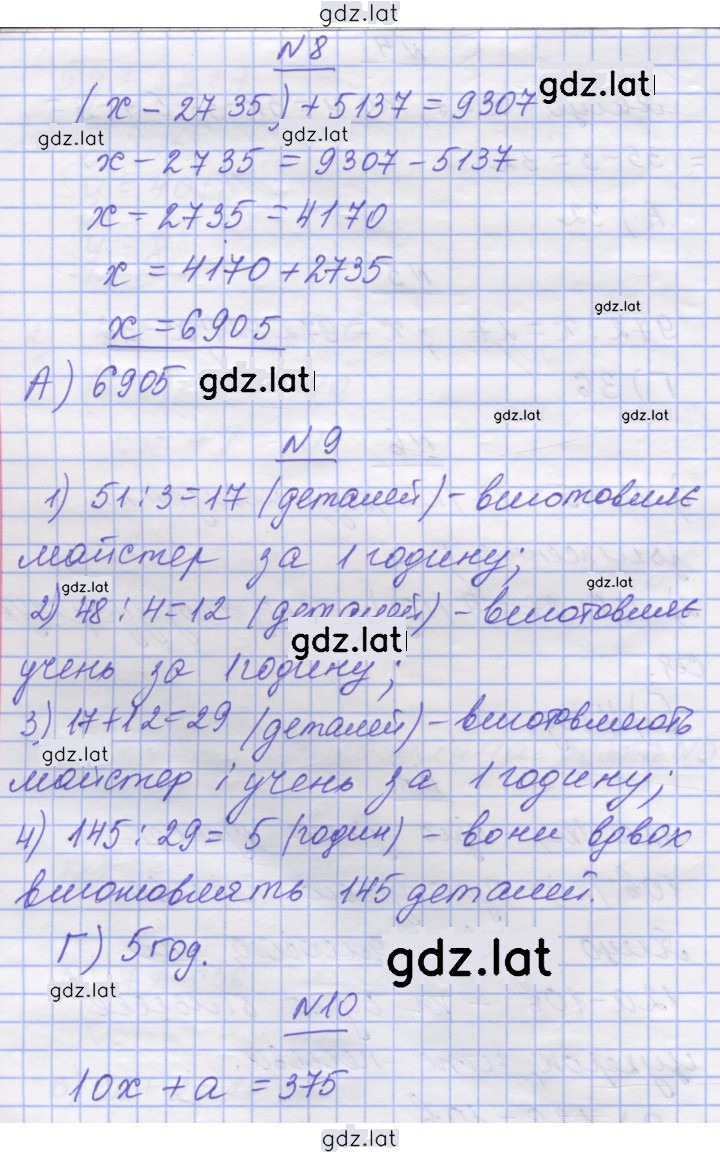 gdz.lat
№8
gdz.lat
(x - 2735) + 5137 = 9307
gdz.lat gdz.lat
x - 2735 = 9307 - 5137
x - 2735 = 4170
x = 4170 + 2735
gdz.lat
x = 6905
А) 6905 gdz.lat
gdz.lat gdz.lat
№9
1) 51 : 3 = 17 (деталей) - виготовляє
майстер за 1 годину;
gdz.lat gdz.lat
2) 48 : 4 = 12 (деталей) - виготовляє
gdz.lat
учень за 1 годину;
3) 17 + 12 = 29 (деталей) - виготовляють
gdz.lat
майстер і учень за 1 годину;
4) 145 : 29 = 5 (годин) - вони вдвох
виготовлять 145 деталей.
Г) 5 год.
gdz.lat
gdz.lat
№10
10x + a = 375
gdz.lat